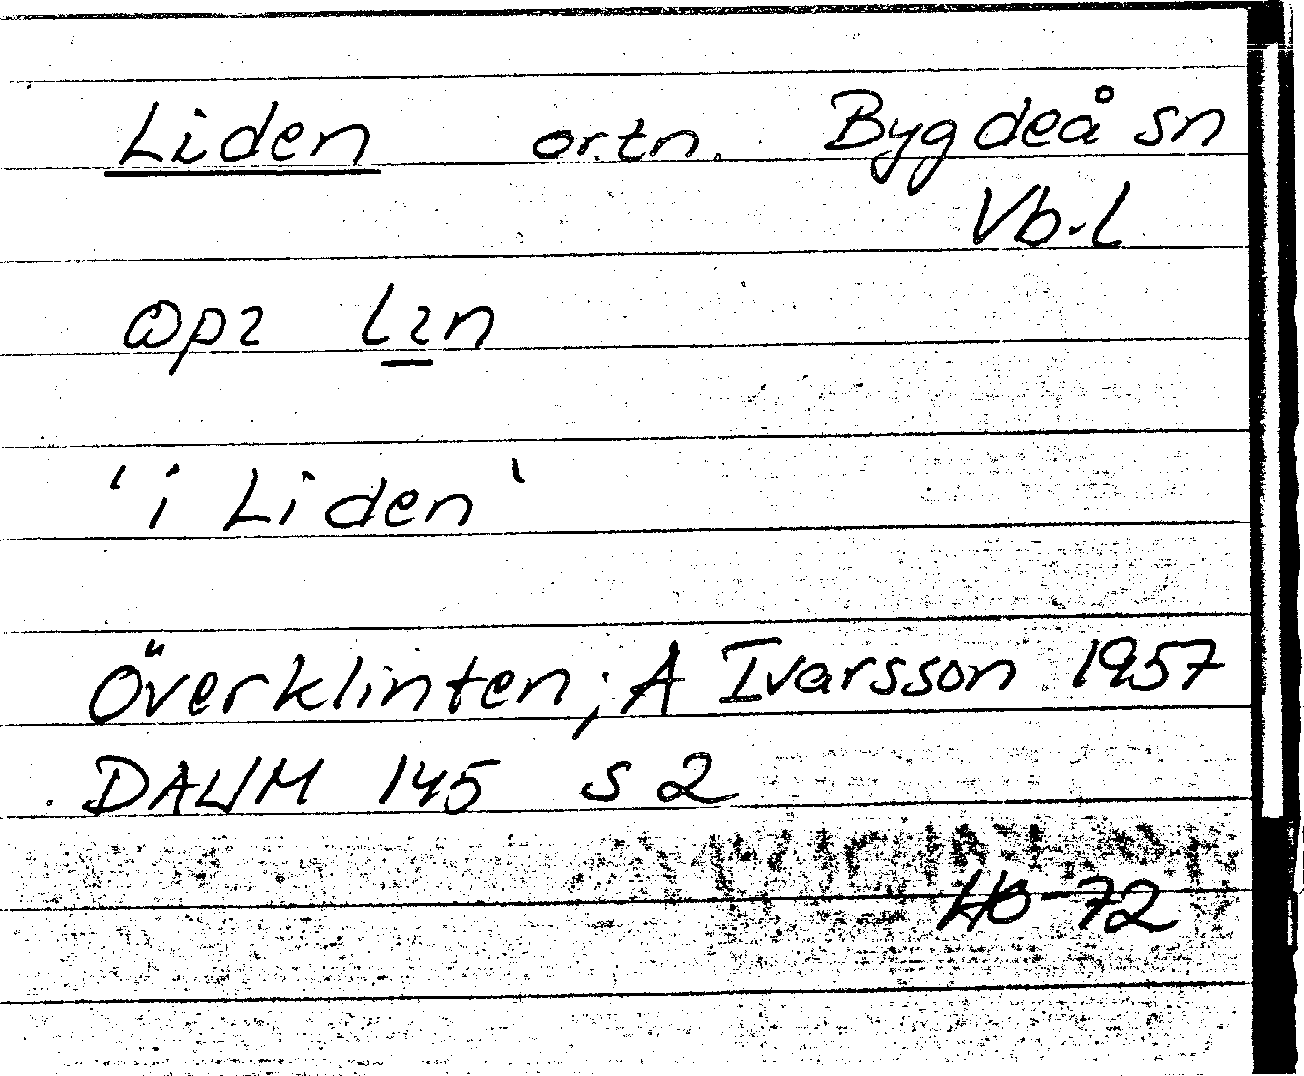 Liden ortn. Bygdeå sn
Vb.l
lın
'i Liden'
Överklinten; A Ivarsson 1957
DAUM 145 s 2